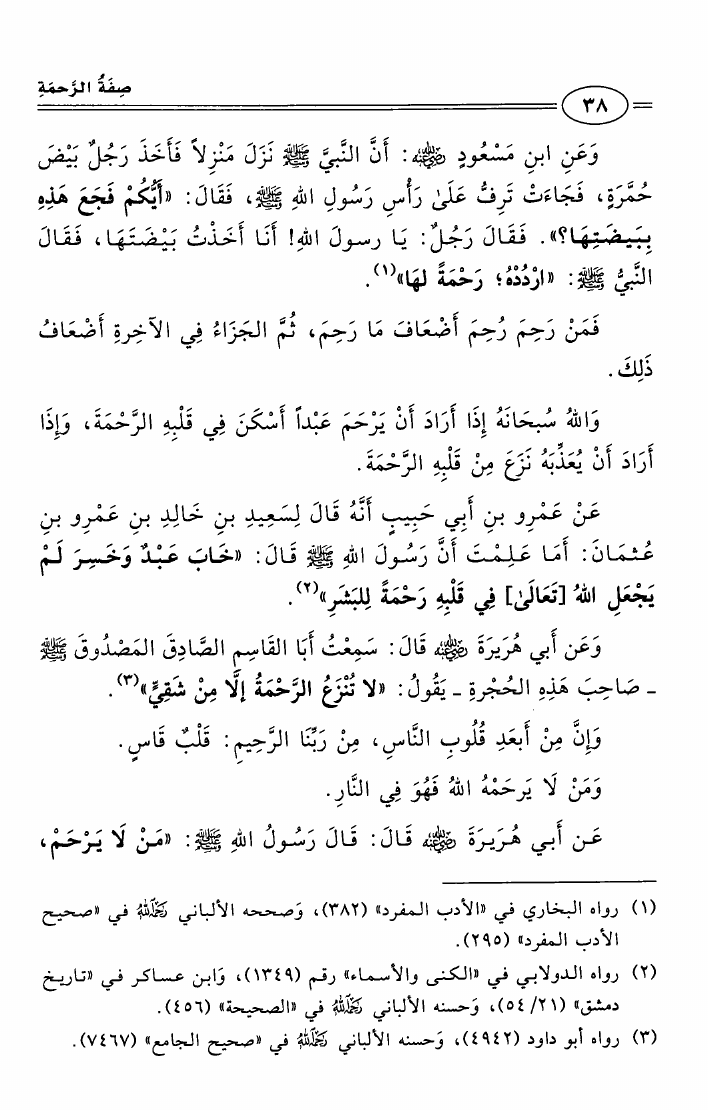 صِفَةُ الرَّحمَةِ
٣٨
وَعَنِ ابنِ مَسْعُودٍ ﵁: أَنَّ النَّبِيَّ ﷺ نَزَلَ مَنْزِلاً فَأَخَذَ رَجُلٌ بَيْضَ
حُمَّرَةٍ، فَجَاءَتْ تَرِفُّ عَلَىٰ رَأْسِ رَسُولِ اللهِ ﷺ، فَقَالَ: «أَيُّكُمْ فَجَعَ هَذِهِ
بِبَيضَتِهَا؟». فَقَالَ رَجُلٌ: يَا رسولَ اللهِ! أَنَا أَخَذْتُ بَيْضَتَهَا، فَقَالَ
النَّبيُّ ﷺ: «ارْدُدْهُ؛ رَحْمَةً لهَا»(١).
فَمَنْ رَحِمَ رُحِمَ أَضْعَافَ مَا رَحِمَ، ثُمَّ الجَزَاءُ فِي الآخِرةِ أَضْعَافُ
ذَلِكَ.
وَاللهُ سُبحَانَهُ إِذَا أَرَادَ أَنْ يَرْحَمَ عَبْداً أَسْكَنَ فِي قَلْبِهِ الرَّحْمَةَ، وَإِذَا
أَرَادَ أَنْ يُعَذِّبَهُ نَزَعَ مِنْ قَلْبِهِ الرَّحْمَةَ.
عَنْ عَمْرِو بنِ أَبِي حَبِيبٍ أَنَّهُ قَالَ لِسَعِيدِ بنِ خَالِدِ بنِ عَمْرِو بنِ
عُثمَانَ: أَمَا عَلِمْتَ أَنَّ رَسُولَ اللهِ ﷺ قَالَ: «خَابَ عَبْدٌ وَخَسِرَ لَمْ
يَجْعَلِ اللهُ [تَعَالَىٰ] فِي قَلْبِهِ رَحْمَةً لِلبَشَرِ»(٢).
وَعَن أَبي هُرَيرَةَ ﵁ قَالَ: سَمِعْتُ أَبَا القَاسِمِ الصَّادِقَ المَصْدُوقَ ﷺ
ـ صَاحِبَ هَذِهِ الحُجْرةِ ـ يَقُولُ: «لا تُنْزَعُ الرَّحْمَةُ إلَّا مِنْ شَقِيٍّ»(٣).
وَإِنَّ مِنْ أَبعَدِ قُلُوبِ النَّاسِ، مِنْ رَبِّنَا الرَّحِيمِ: قَلْبٌ قَاسٍ.
وَمَنْ لَا يَرحَمْهُ اللهُ فَهُوَ فِي النَّارِ.
عَن أَبي هُرَيرَةَ ﵁ قَالَ: قَالَ رَسُولُ اللهِ ﷺ: «مَنْ لَا يَرْحَمْ،
(١) رواه البخاري في «الأدب المفرد» (٣٨٢)، وَصححه الألباني ﵀ في «صحيح
الأدب المفرد» (٢٩٥).
(٢) رواه الدولابي في «الكنى والأسماء» رقم (١٣٤٩)، وَابن عساكر في «تاريخ
دمشق» (٥٤/٢١)، وَحسنه الألباني ﵀ في «الصحيحة» (٤٥٦).
(٣) رواه أبو داود (٤٩٤٢)، وَحسنه الألباني ﵀ في «صحيح الجامع» (٧٤٦٧).